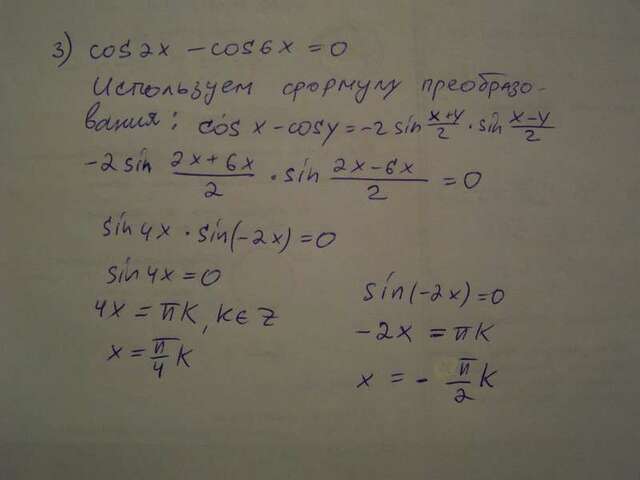 3) cos 2x - cos 6x = 0
Используем формулу преобразо-
вания: cos x - cos y = -2 sin \frac{x+y}{2} · sin \frac{x-y}{2}
-2 sin \frac{2x+6x}{2} · sin \frac{2x-6x}{2} = 0
sin 4x · sin(-2x) = 0
sin 4x = 0
4x = πk, k ∈ Z
x = \frac{π}{4} k
sin(-2x) = 0
-2x = πk
x = - \frac{π}{2} k